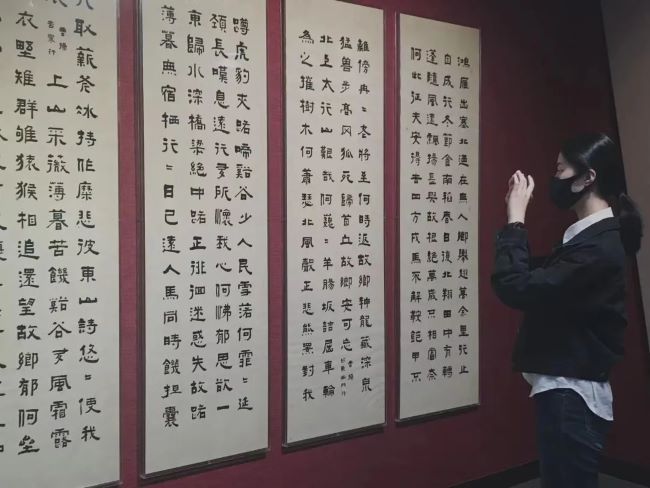 鴻雁出塞北乃在無人鄉舉翅萬余里行止
自成行冬節食南稻春日復北翔田中有轉
蓬隨風遠飄揚長與故根絕萬歲不相當奈
何此征夫安得去四方戎馬不解鞍鎧甲不
離傍冉〻老將至何時返故鄉神龍藏深泉
猛獸步高岡狐死歸首丘故鄉安可忘 曹操
北上太行山艱哉何巍〻羊腸坂詰屈車輪
為之摧樹木何蕭瑟北風聲正悲熊羆對我
蹲虎豹夾路啼谿谷少人民雪落何霏〻延
頸長嘆息遠行多所懷我心何怫郁思欲一
東歸水深橋梁絕中路正徘徊迷惑失故路
薄暮無宿栖行〻日已遠人馬同時饑擔囊
取薪斧冰持作糜悲彼東山詩悠〻使我
曹操 苦寒行 上山采薇薄暮苦饑谿谷多風霜露
衣野雉群雊猿猴相追還望故鄉郁何壘